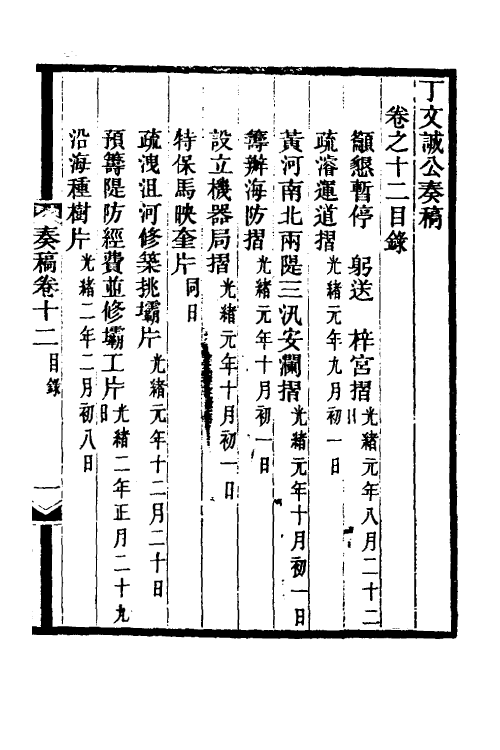 丁文誠公奏稿
卷之十二目錄
籲懇暫停　躬送　梓宮摺光緒元年八月二十二日
疏濬運道摺光緒元年九月初一日
黃河南北兩隄三汛安瀾摺光緒元年十月初一日
籌辦海防摺光緒元年十月初一日
設立機器局摺光緒元年十月初一日
特保馬映奎片同日
疏洩沮河修築挑壩片光緒元年十二月二十日
預籌隄防經費並修壩工片光緒二年正月二十九日
沿海種樹片光緒二年二月初八日
奏稿卷十二目錄　一